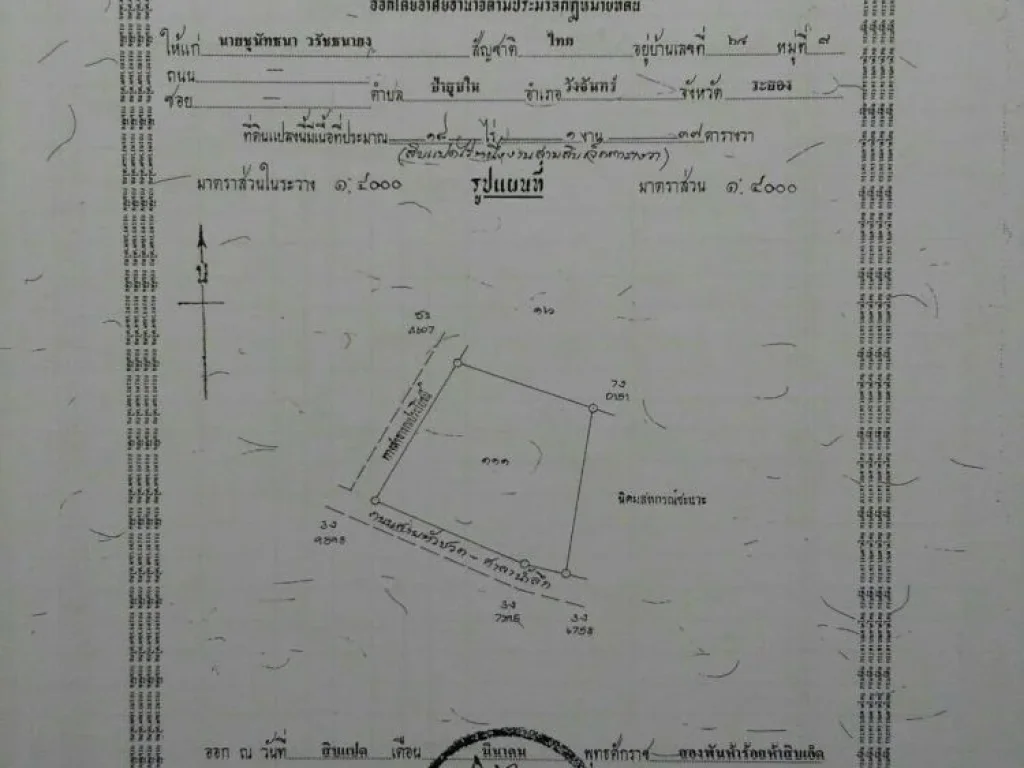 ออกโดยอาศัยอำนาจตามประมวลกฎหมายที่ดิน
ให้แก่ นายชุนัทธนา วรัชธนายง สัญชาติ ไทย อยู่บ้านเลขที่ ๖๙ หมู่ที่ ๘
ถนน —
ซอย — ตำบล ป่ายุบใน อำเภอ วังจันทร์ จังหวัด ระยอง
ที่ดินแปลงนี้มีเนื้อที่ประมาณ ๑๘ ไร่ ๑ งาน ๓๗ ตารางวา
(สิบแปดไร่หนึ่งงานสามสิบเจ็ดตารางวา)
มาตราส่วนในระวาง ๑:๔๐๐๐ รูปแผนที่ มาตราส่วน ๑:๔๐๐๐
น
๑๑๑
ทางสาธารณประโยชน์
นิคมสหกรณ์ชะแวะ
ออก ณ วันที่ สิบแปด เดือน มีนาคม พุทธศักราช สองพันห้าร้อยห้าสิบเอ็ด